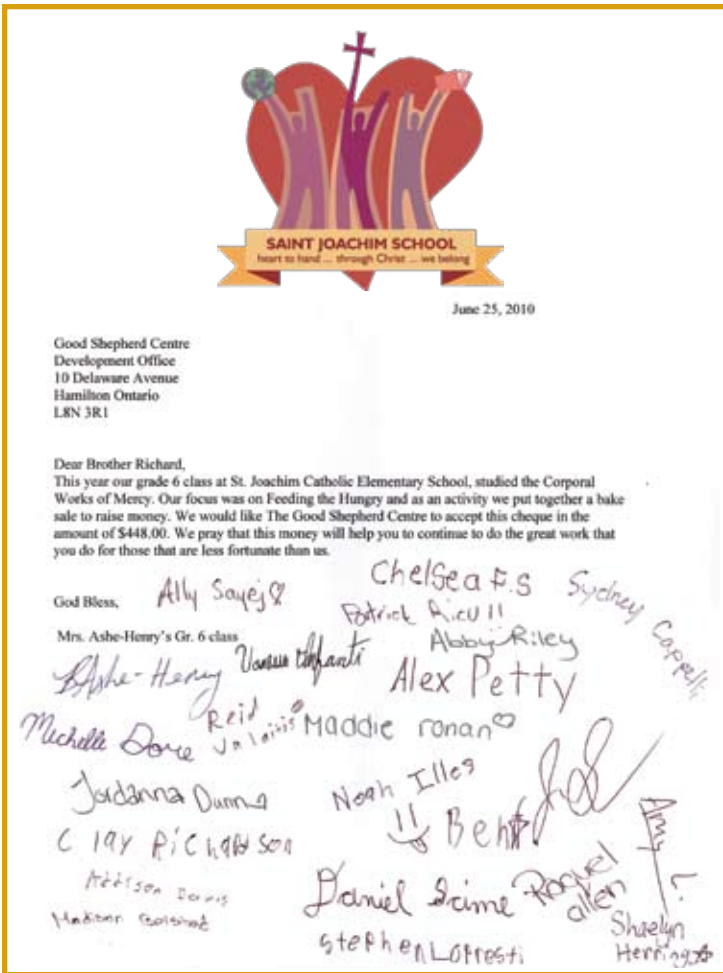 SAINT JOACHIM SCHOOL
heart to hand ... through Christ ... we belong
June 25, 2010
Good Shepherd Centre
Development Office
10 Delaware Avenue
Hamilton Ontario
L8N 3R1
Dear Brother Richard,
This year our grade 6 class at St. Joachim Catholic Elementary School, studied the Corporal
Works of Mercy. Our focus was on Feeding the Hungry and as an activity we put together a bake
sale to raise money. We would like The Good Shepherd Centre to accept this cheque in the
amount of $448.00. We pray that this money will help you to continue to do the great work that
you do for those that are less fortunate than us.
God Bless,
Ally Sayej
Chelsea F.S
Sydney Cappelli
Patrick
Mrs. Ashe-Henry's Gr. 6 class
Abby Riley
BAshe-Henry
Alex Petty
Michelle Dore
Reid
Maddie ronan
Jordanna Dunn
Noah Illes
Ben
Amy L.
Clay Richardson
Addison
Daniel
Raquel
allen
Madison
Stephen Lopresti
Shaelyn
Herring